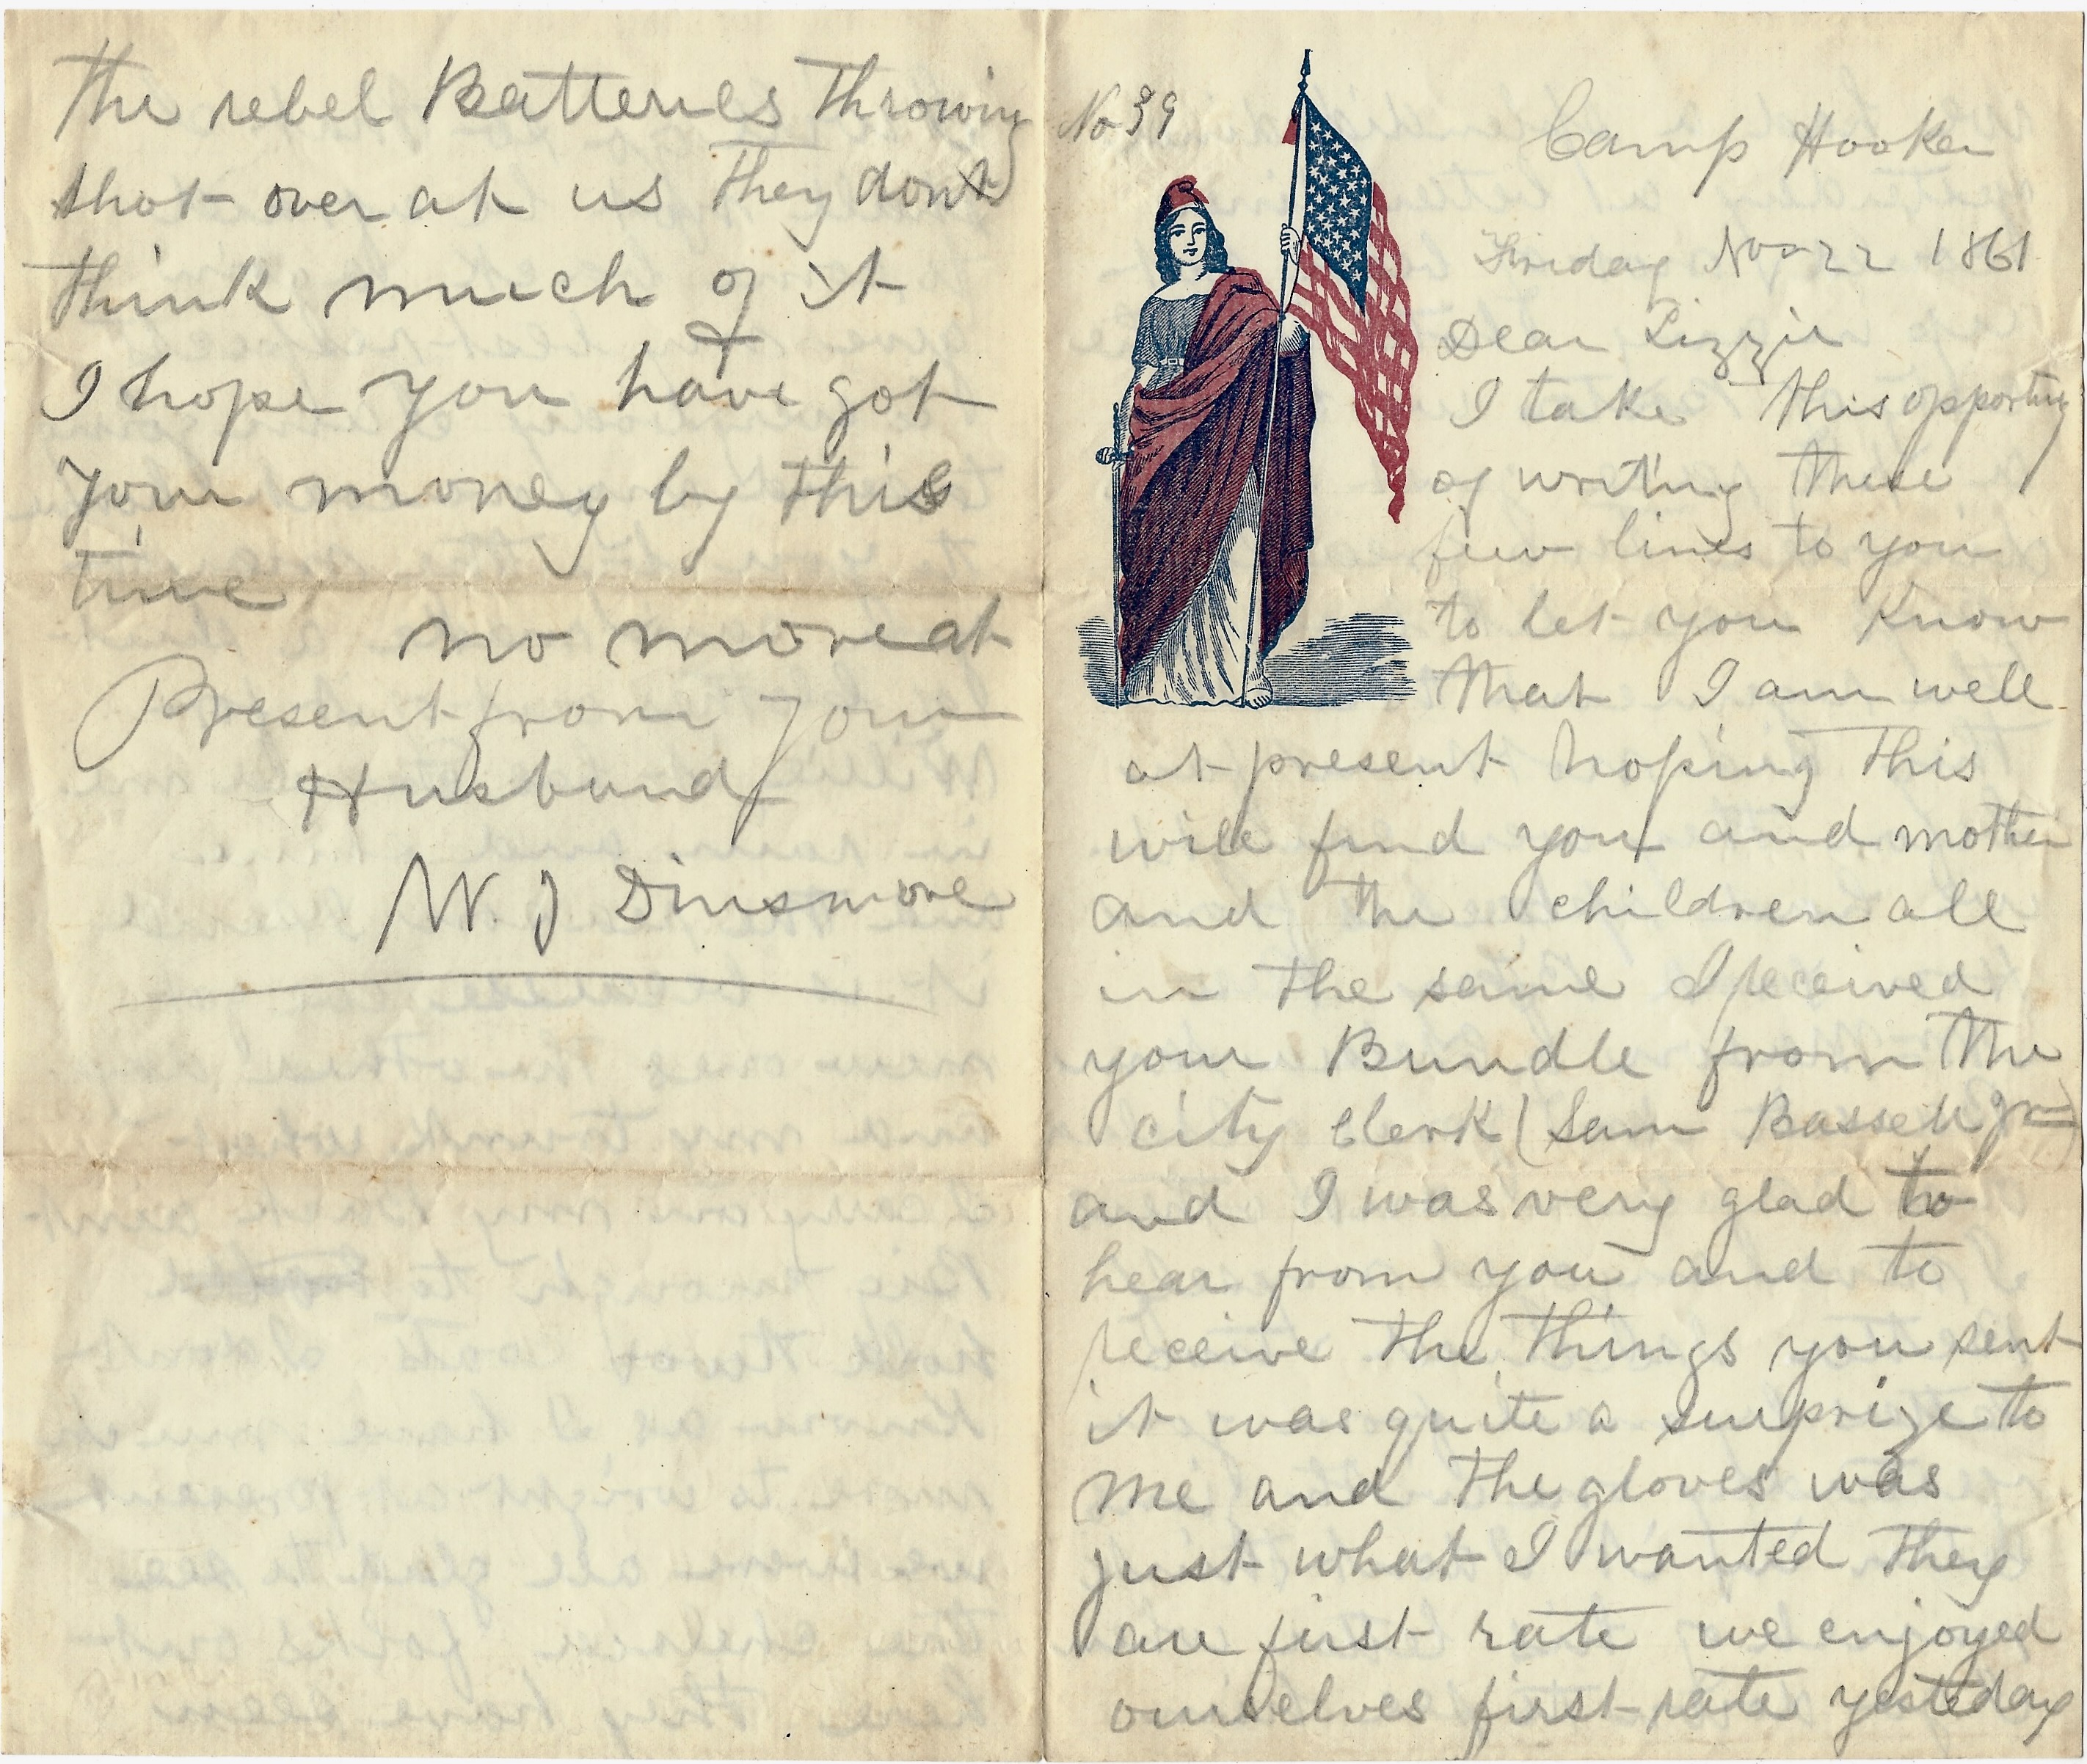 The rebel Batteries throwing
shot over at us They dont
think much of it
I hope you have got
your money by this
time
no more at
Present from your
Husband
W. J Dinsmore
No 39
Camp Hooker
Friday Nov 22 1861
Dear Lizzie
I take this opportuny
of writing these
few lines to you
to let you know
that I am well
at present hoping this
will find you and mother
and the children all
in the same I received
your Bundle from the
city Clerk (Sam Bassett Jr)
and I was very glad to
hear from you and to
receive the things you sent
it was quite a surprize to
me and the gloves was
just what I wanted they
are first rate we enjoyed
ourselves first rate yesteday